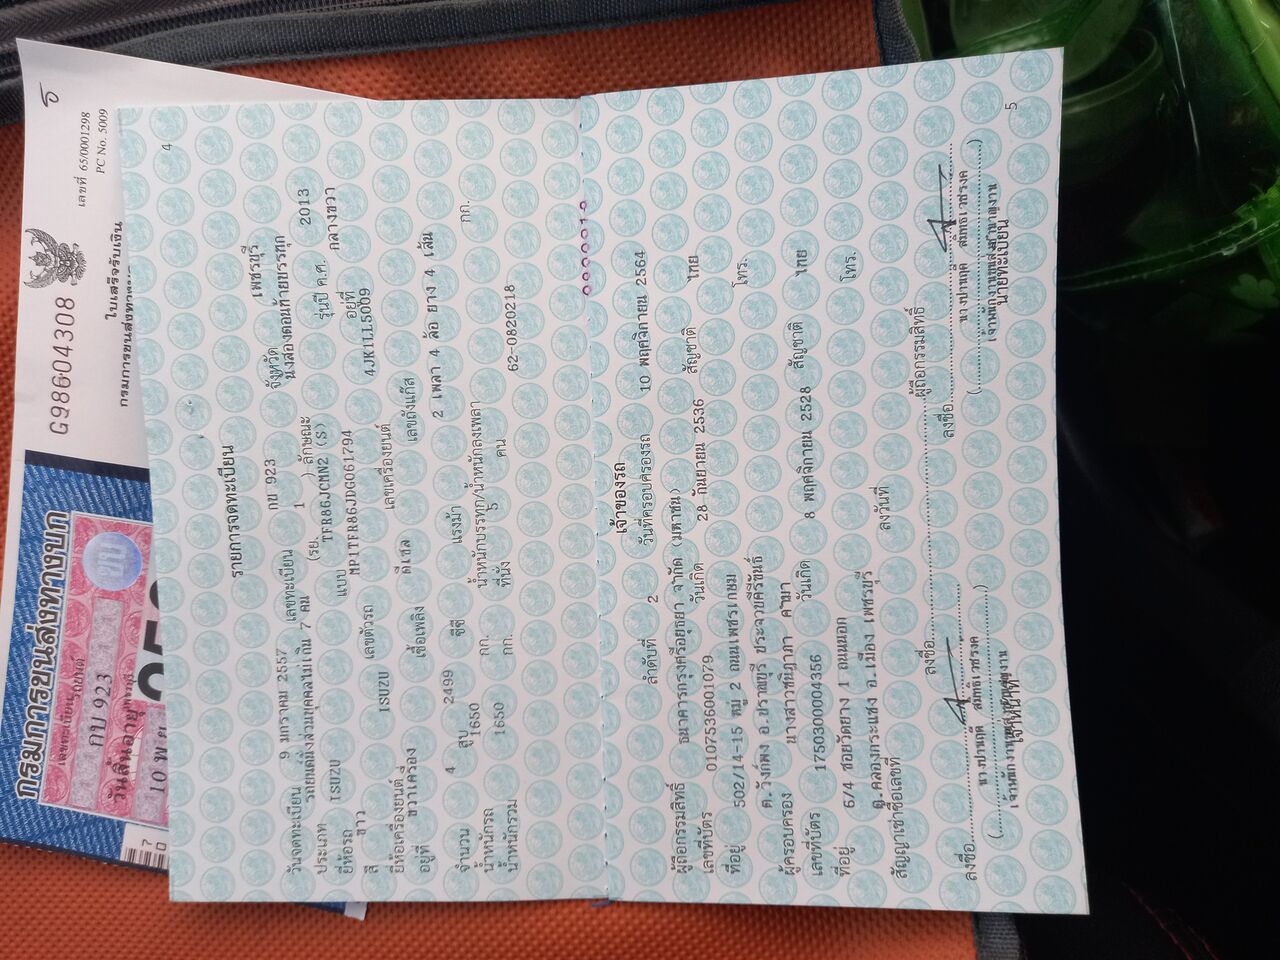 เลขที่ 65/0001298
PC No. 5009
G98604308
ใบเสร็จรับเงิน
กรมการขนส่งทางบก
กรมการขนส่งทางบก
เลขทะเบียนรถยนต์
กบ 923 เพชรบุรี
วันสิ้นอายุ
10 พ.ย.
4
รายการจดทะเบียน
วันจดทะเบียน 9 มกราคม 2557 เลขทะเบียน กบ 923 จังหวัด เพชรบุรี
ประเภท รถยนต์นั่งส่วนบุคคลไม่เกิน 7 คน (รย. 1 ) ลักษณะ นั่งสองตอนท้ายบรรทุก
ยี่ห้อรถ ISUZU แบบ TFR86JCMN2 (S) รุ่นปี ค.ศ. 2013
สี ขาว เลขตัวรถ MP1TFR86JDG061794 อยู่ที่ กลางขวา
ยี่ห้อเครื่องยนต์ ISUZU เลขเครื่องยนต์ 4JK1LL5009
อยู่ที่ ขวาเครื่อง เชื้อเพลิง ดีเซล เลขถังแก๊ส
จำนวน 4 สูบ 2499 ซีซี แรงม้า 2 เพลา 4 ล้อ ยาง 4 เส้น
น้ำหนักรถ 1650 กก. น้ำหนักบรรทุก/น้ำหนักลงเพลา กก.
น้ำหนักรวม 1650 กก. ที่นั่ง 5 คน 62-0820218
เจ้าของรถ
ลำดับที่ 2 วันที่ครอบครองรถ 10 พฤศจิกายน 2564
ผู้ถือกรรมสิทธิ์ ธนาคารกรุงศรีอยุธยา จำกัด (มหาชน)
เลขที่บัตร 0107536001079 วันเกิด 28 กันยายน 2536 สัญชาติ ไทย
ที่อยู่ 502/14-15 หมู่ 2 ถนนเพชรเกษม
ต.วังก์พง อ.ปราณบุรี ประจวบคีรีขันธ์ โทร.
ผู้ครอบครอง
เลขที่บัตร 1750300004356 วันเกิด 8 พฤศจิกายน 2528 สัญชาติ ไทย
ที่อยู่ 674 ซอยวัดยาง 1 ถนนนอก
ต.คลองกระแชง อ.เมือง เพชรบุรี โทร.
สัญญาเช่าซื้อเลขที่ ลงวันที่
ลงชื่อ ผู้ถือกรรมสิทธิ์
ลงชื่อ ลงชื่อ
เจ้าหน้าที่ นายทะเบียน
5